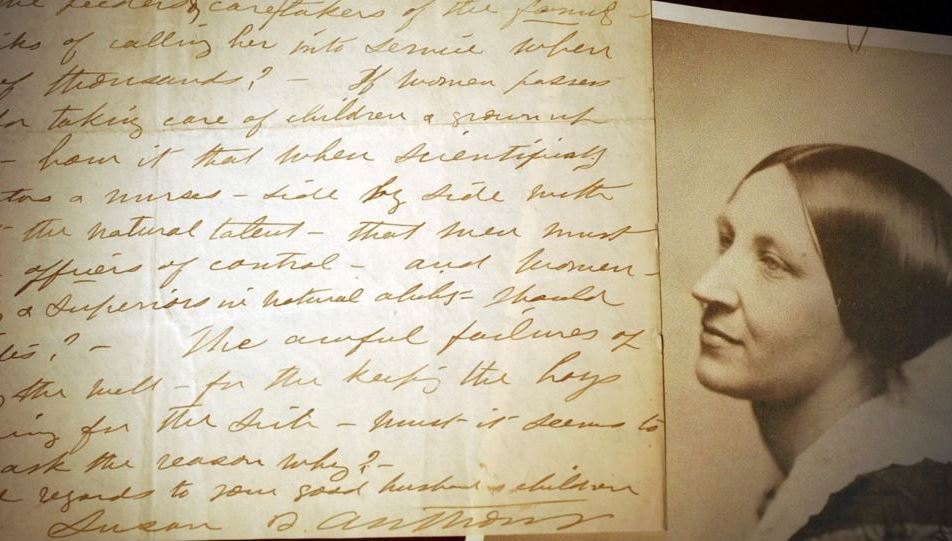 caretakers of the family
of calling her into service when
of thousands? - If women possess
for taking care of children & grown up
- how is it that when scientifically
& nurses - side by side with
the natural talent - that men must
officers of control - and women -
& superiors in natural ability - should
? - The awful failures of
the well - for the keeping the boys
for the sick - must it seems to
ask the reason why? -
regards to your good husband & children
Susan B. Anthony